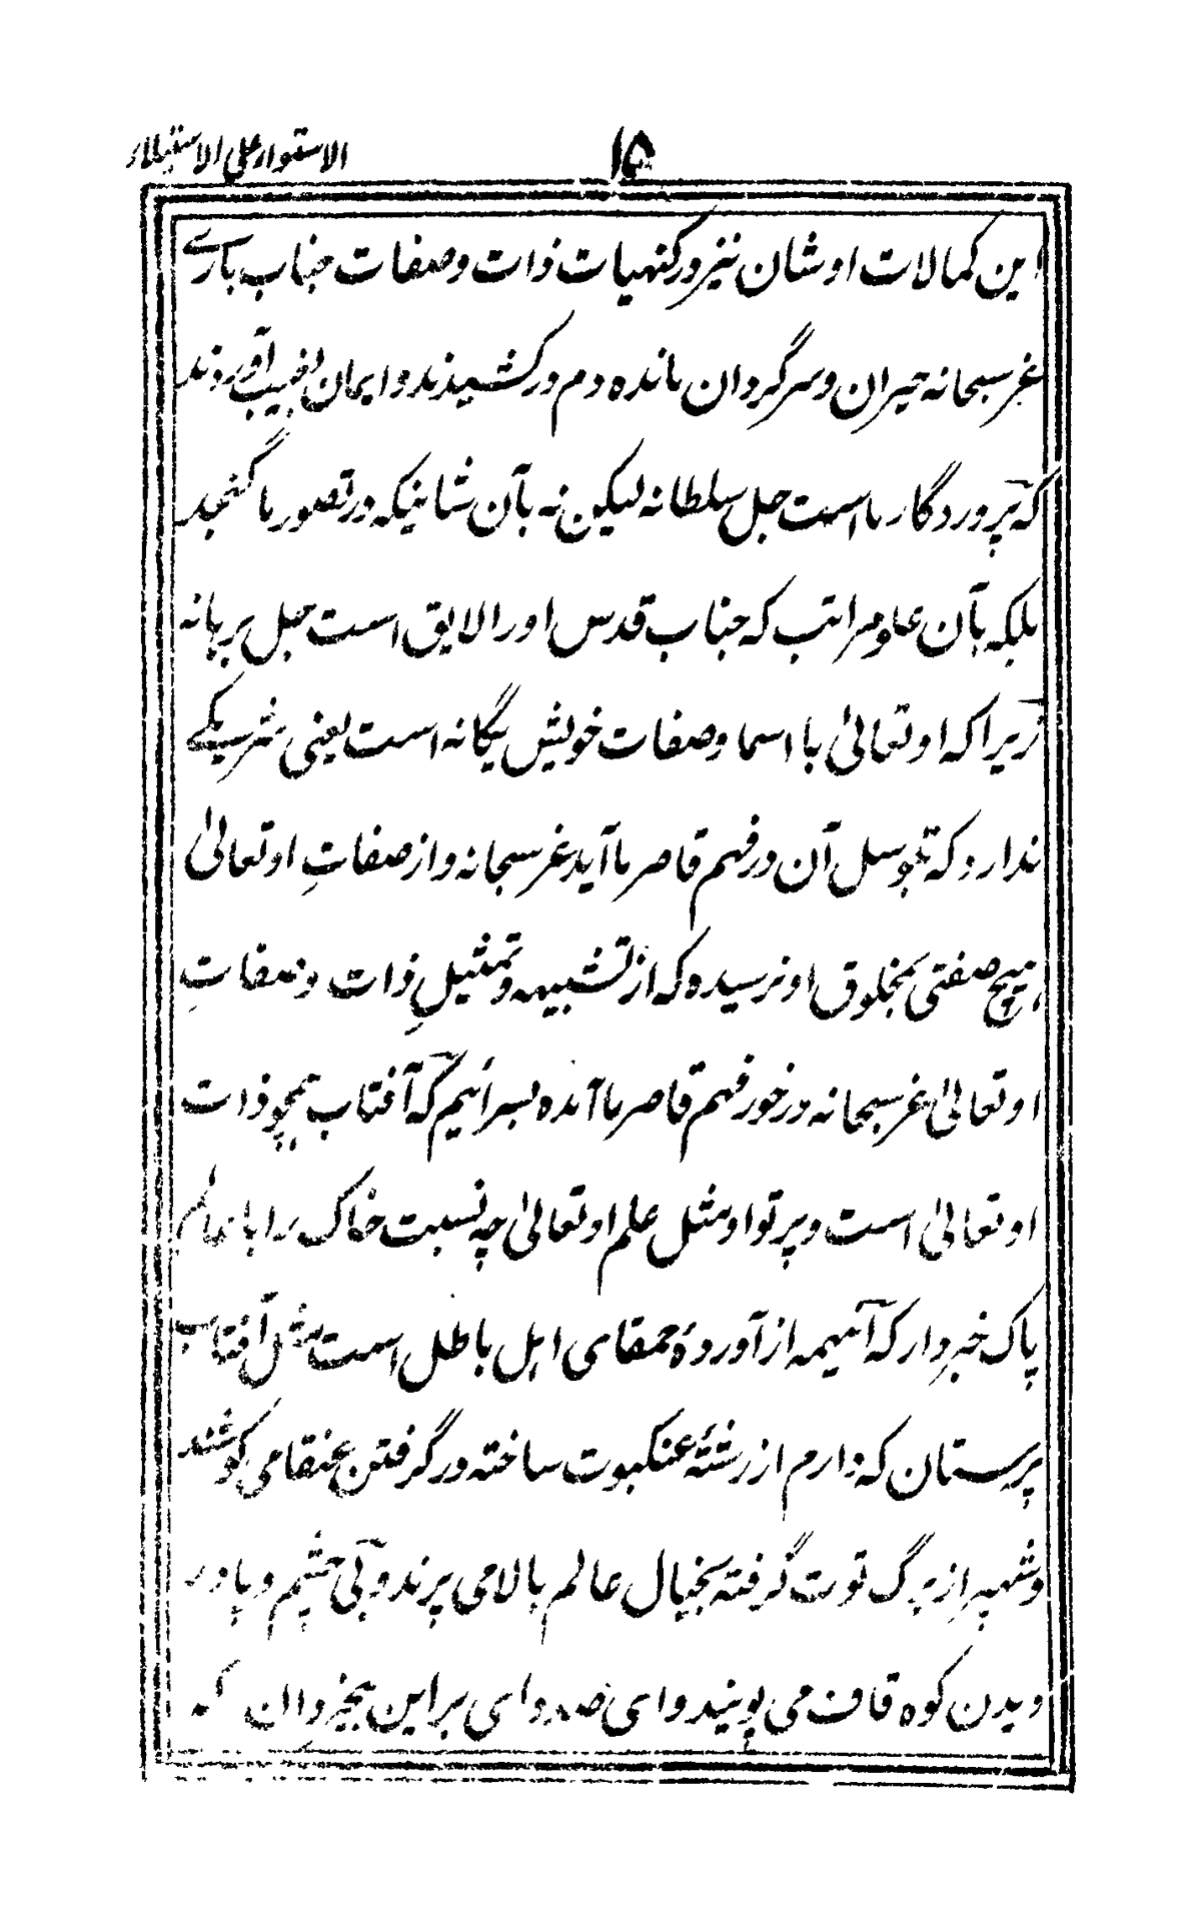 ۱۵
الاستواء علی الاستیلاء
این کمالات اوشان نیز در کنهیات ذات و صفات جناب باری
عز سبحانه حیران و سرگردان مانده دم در کشیدند و ایمان بغیب آوردند
که پروردگار ما است جل سلطانه لیکن نه بآن شانیکه در تصور ما گنجد
بلکه بآن علو مراتب که جناب قدس او را لایق است جل برهانه
زیرا که او تعالیٰ با اسما و صفات خویش یگانه است یعنی شریکے
ندارد که بتوسل آن در فهم قاصر ما آید عز سبحانه و از صفاتِ او تعالیٰ
هیچ صفتی بمخلوق او نرسیده که از تشبیه و تمثیلِ ذات و صفاتِ
او تعالیٰ عز سبحانه در خور فهم قاصر ما آمده بسرائیم که آفتاب همچو ذات
او تعالیٰ است و پرتو او مثل علم او تعالیٰ چه نسبت خاک را با عالم
پاک خبردار که آنهمه از آوردهٔ حمقای اهل باطل است مثل آفتاب
پرستان که دارم از رشتهٔ عنکبوت ساخته در گرفتن عنقا می کوشند
و شهپر از برگ توت گرفته بخیال عالم بالا می پرند و بی چشم و پا در
دیدن کوه قاف می پویند وای صد وای بر این بیخردان که